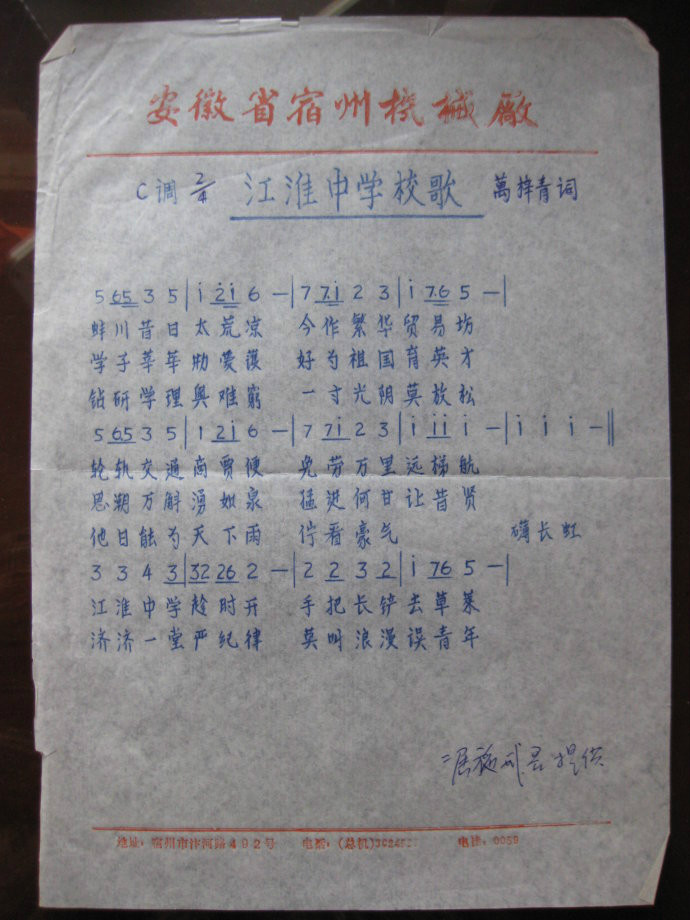 安徽省宿州機械廠
C调 2/4 江淮中学校歌 萬梓青词
5 65 3 5 | i 2i 6 — | 7 7.i 2 3 | i 7.6 5 — |
蚌川昔日太荒凉 今作繁华贸易坊
学子莘莘勋爱護 好为祖国育英才
钻研学理奥难窮 一寸光阴莫放松
5 65 3 5 | 1 2i 6 — | 7 7i 2 3 | i ii i — | i i i — ‖
轮轨交通商賈便 免劳万里远梯航
思潮万斛湧如泉 猛进何甘让昔贤
他日能为天下雨 伫看豪气 礴长虹
3 3 4 3 | 32 26 2 — | 2 2 3 2 | i 76 5 — |
江淮中学趁时开 手把长铲去草莱
济济一堂严纪律 莫叫浪漫误青年
提供
地址：宿州市汴河路492号 电话：(总机) 电挂：0059